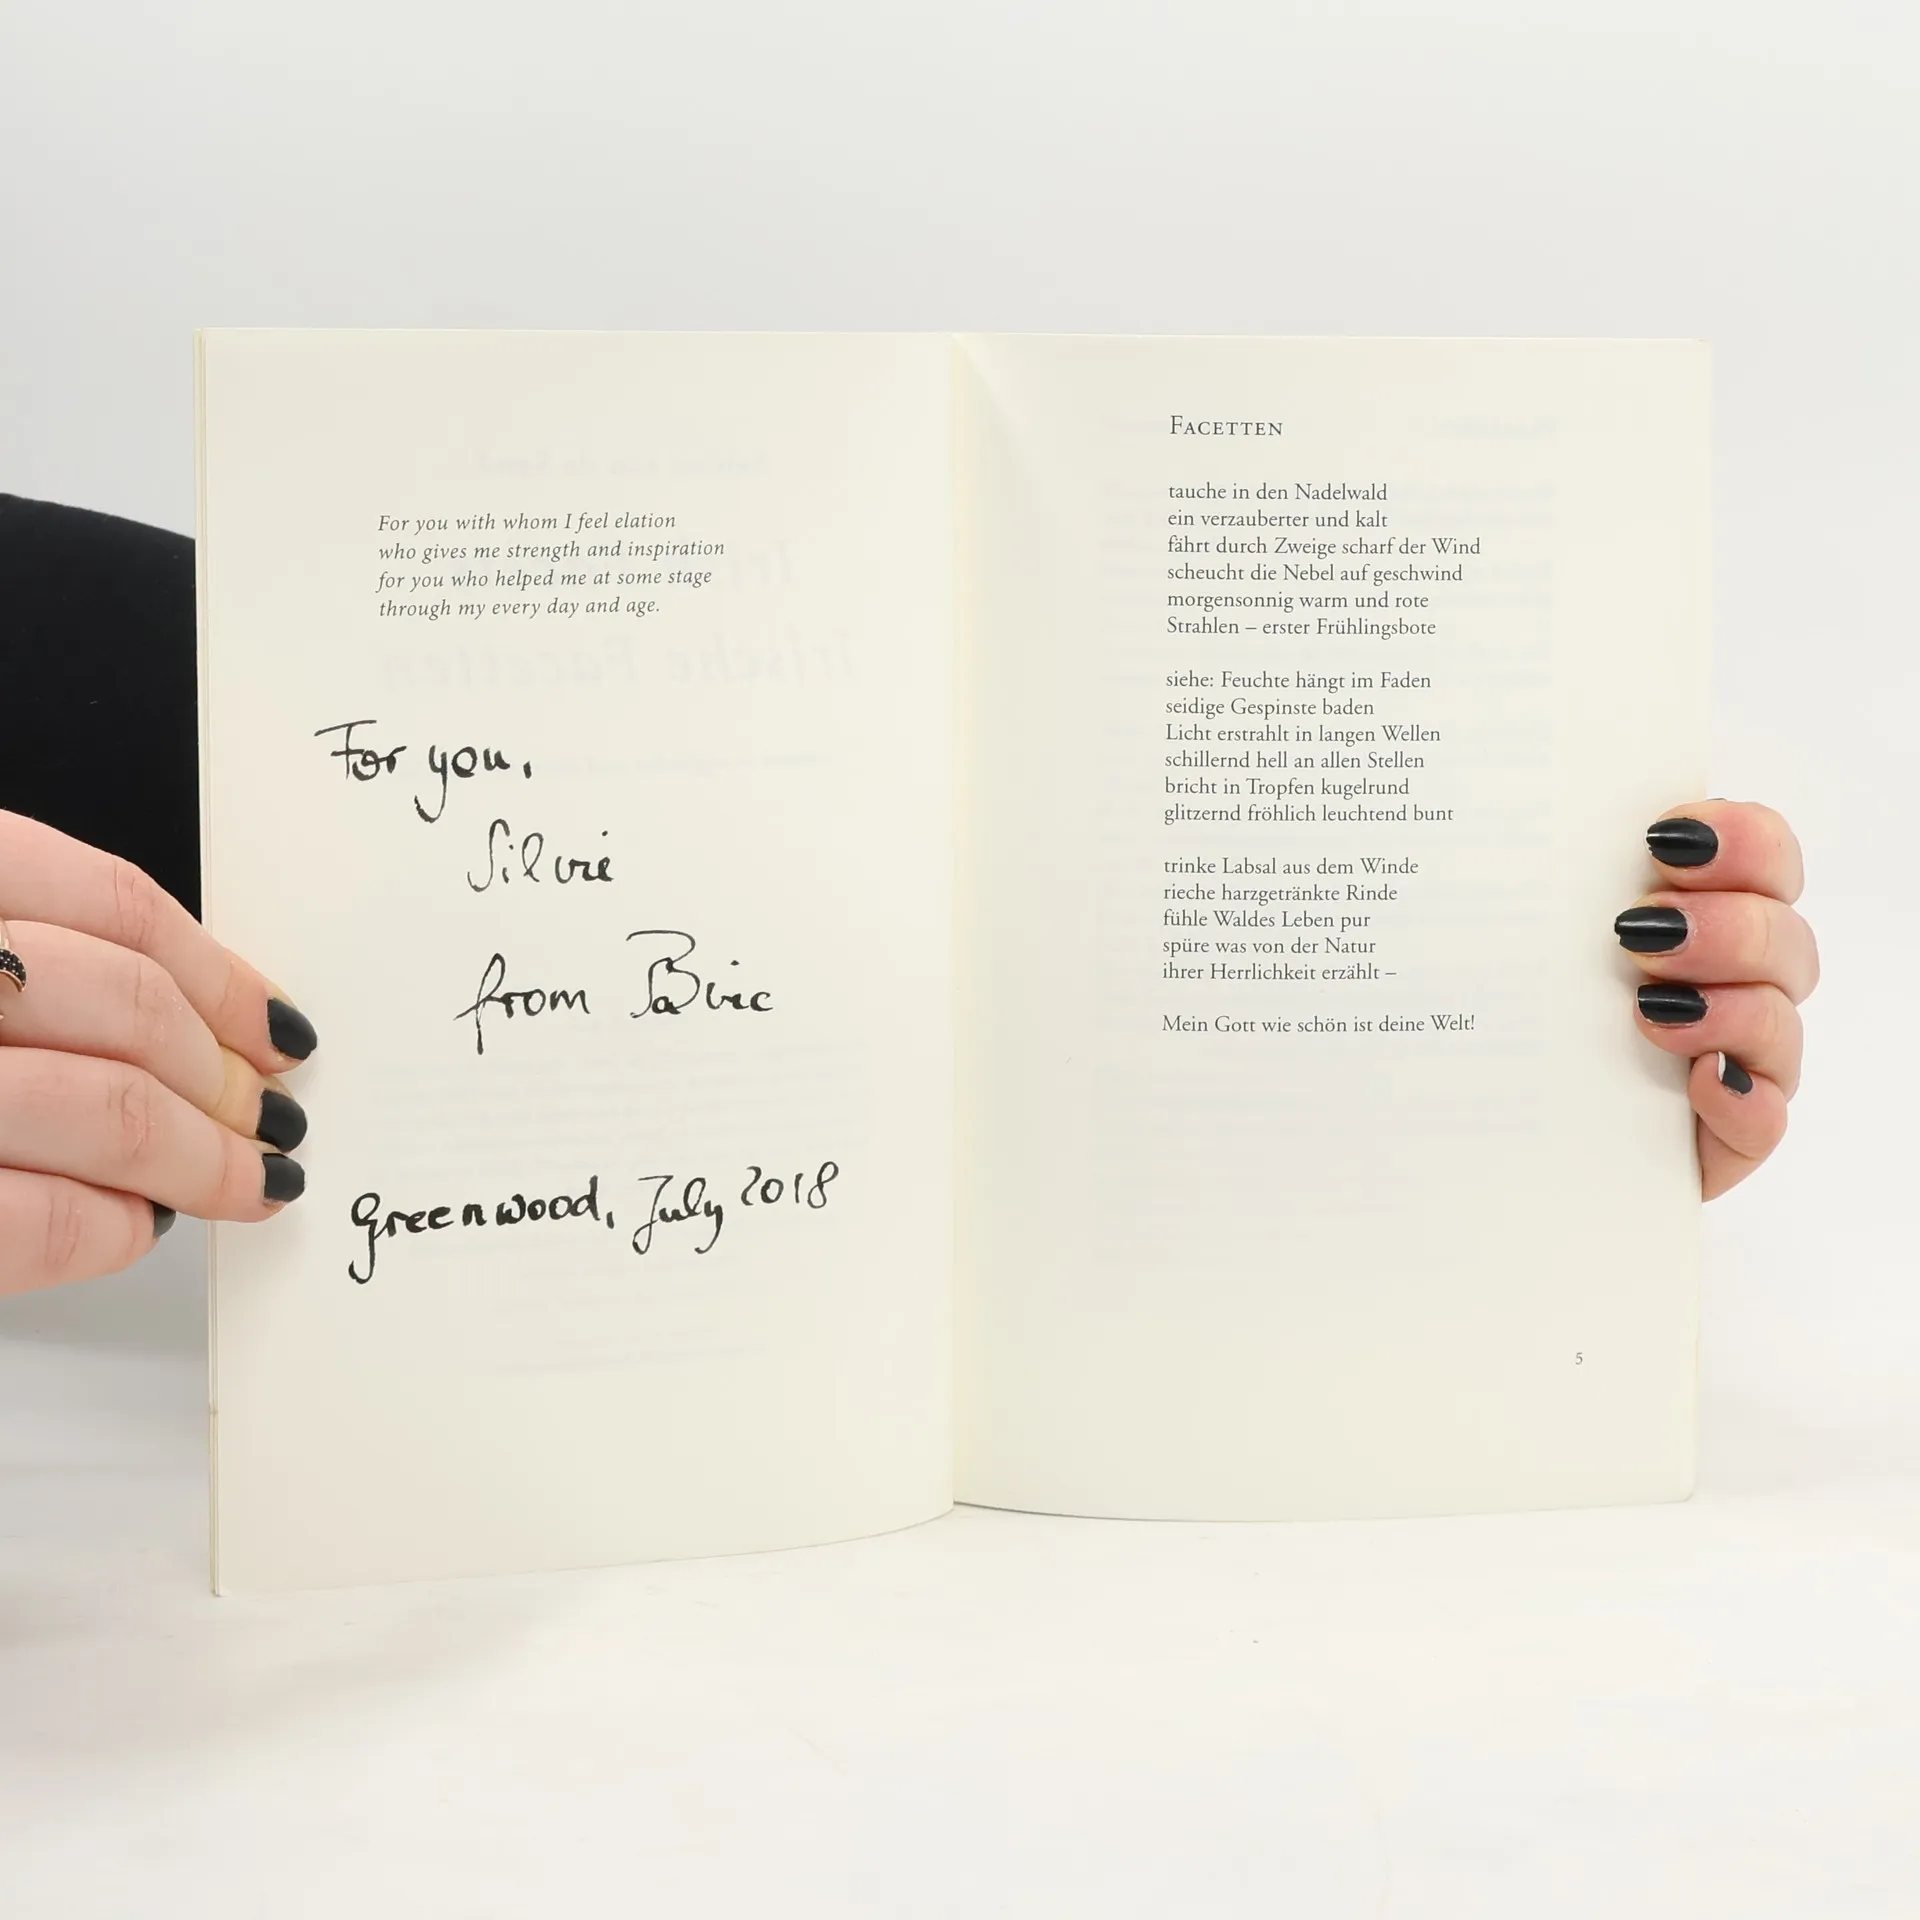 For you with whom I feel elation
who gives me strength and inspiration
for you who helped me at some stage
through my every day and age.
For you,
Silvie
from
Greenwood, July 2018
FACETTEN
tauche in den Nadelwald
ein verzauberter und kalt
fährt durch Zweige scharf der Wind
scheucht die Nebel auf geschwind
morgensonnig warm und rote
Strahlen – erster Frühlingsbote
siehe: Feuchte hängt im Faden
seidige Gespinste baden
Licht erstrahlt in langen Wellen
schillernd hell an allen Stellen
bricht in Tropfen kugelrund
glitzernd fröhlich leuchtend bunt
trinke Labsal aus dem Winde
rieche harzgetränkte Rinde
fühle Waldes Leben pur
spüre was von der Natur
ihrer Herrlichkeit erzählt –
Mein Gott wie schön ist deine Welt!
5